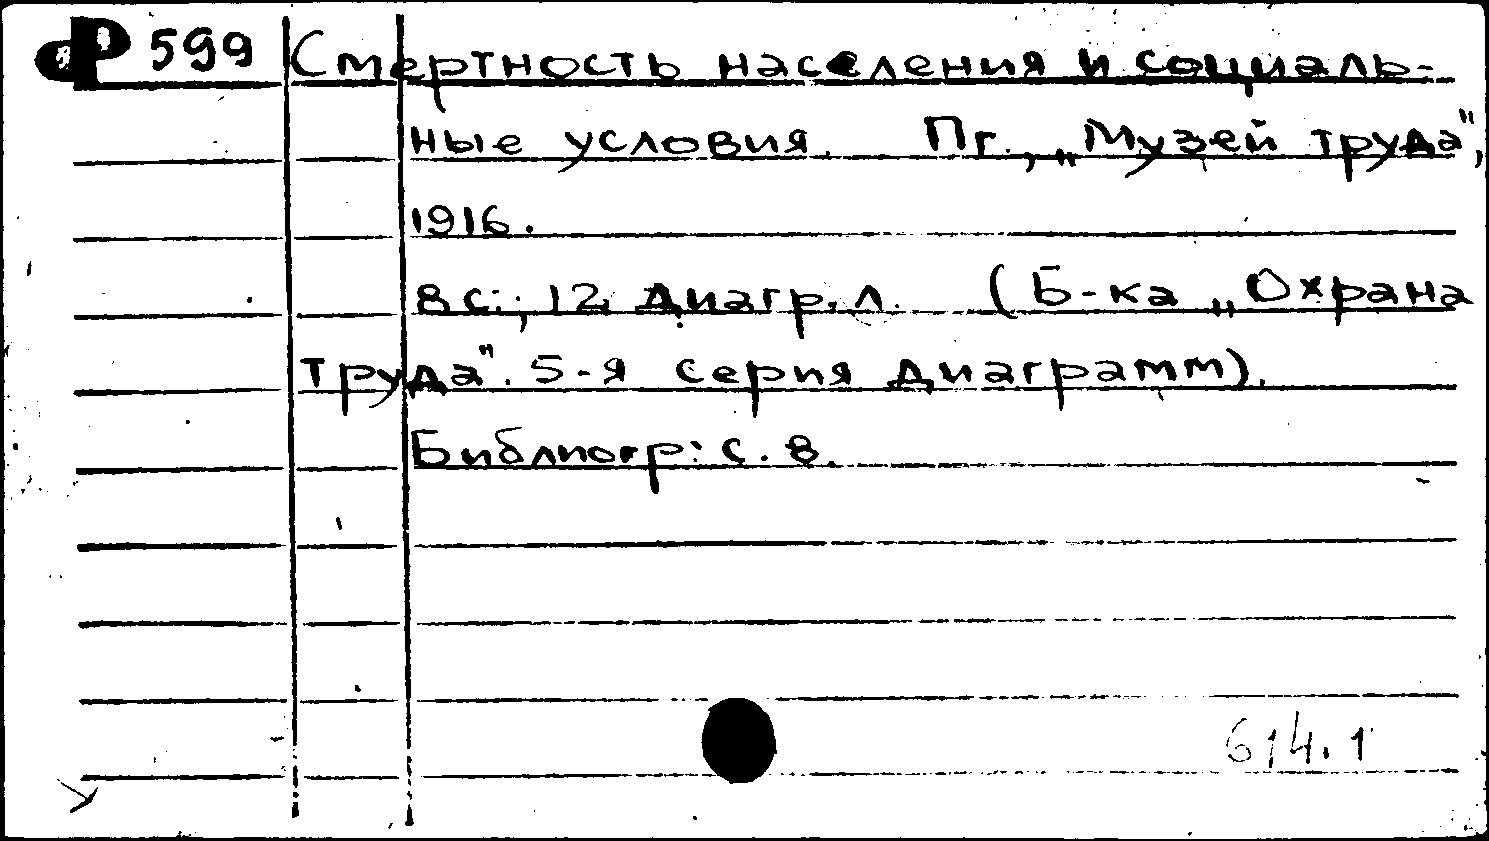 Р 599 Смертность населения и социаль-
ные условия. Пг., „Музей труда",
1916.
8 с.; 12 диагр. л. (Б-ка „Охрана
труда". 5-я серия диаграмм).
Библиогр: с. 8.
614.1